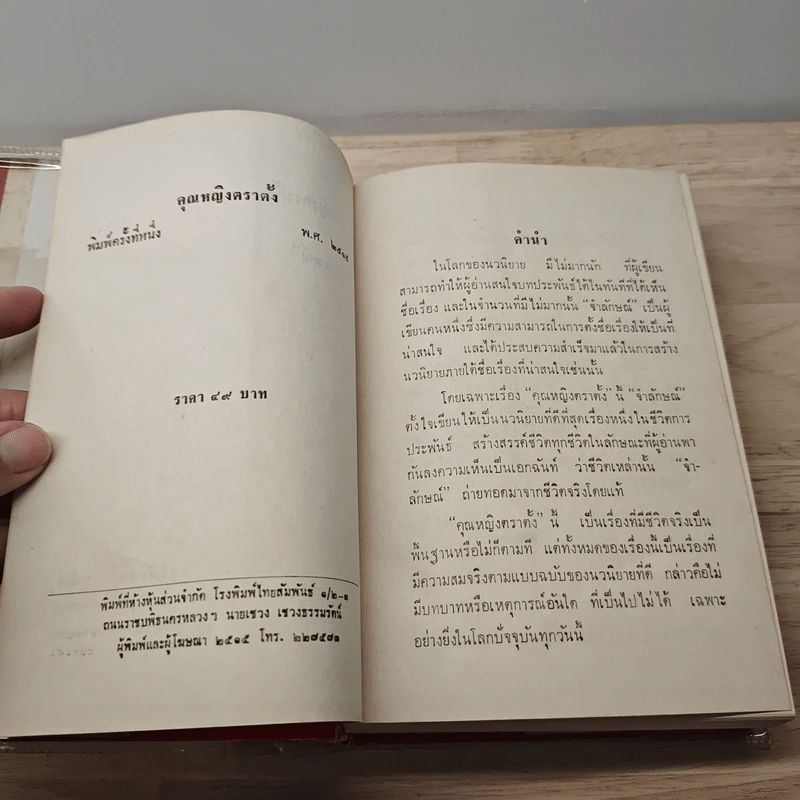 คุณหญิงตราตั้ง
พิมพ์ครั้งที่หนึ่ง พ.ศ. ๒๕๑๕
ราคา ๔๙ บาท
พิมพ์ที่ห้างหุ้นส่วนจำกัด โรงพิมพ์ไทยสัมพันธ์ ๑/๒-๑
ถนนราชบพิธนครหลวงฯ นายเชวง เชวงธรรมรัตน์
ผู้พิมพ์และผู้โฆษณา ๒๕๑๕ โทร. ๒๒๘๕๘๑
คำนำ
ในโลกของนวนิยาย มีไม่มากนัก ที่ผู้เขียน
สามารถทำให้ผู้อ่านสนใจบทประพันธ์ได้ในทันทีที่ได้เห็น
ชื่อเรื่อง และในจำนวนที่มีไม่มากนั้น “จำลักษณ์” เป็นผู้
เขียนคนหนึ่งซึ่งมีความสามารถในการตั้งชื่อเรื่องให้เป็นที่
น่าสนใจ และได้ประสบความสำเร็จมาแล้วในการสร้าง
นวนิยายภายใต้ชื่อเรื่องที่น่าสนใจเช่นนั้น
โดยเฉพาะเรื่อง “คุณหญิงตราตั้ง” นี้ “จำลักษณ์”
ตั้งใจเขียนให้เป็นนวนิยายที่ดีที่สุดเรื่องหนึ่งในชีวิตการ
ประพันธ์ สร้างสรรค์ชีวิตทุกชีวิตในลักษณะที่ผู้อ่านพา
กันลงความเห็นเป็นเอกฉันท์ ว่าชีวิตเหล่านั้น “จำ-
ลักษณ์” ถ่ายทอดมาจากชีวิตจริงโดยแท้
“คุณหญิงตราตั้ง” นี้ เป็นเรื่องที่มีชีวิตจริงเป็น
พื้นฐานหรือไม่ก็ตามที แต่ทั้งหมดของเรื่องนี้เป็นเรื่องที่
มีความสมจริงตามแบบฉบับของนวนิยายที่ดี กล่าวคือไม่
มีบทบาทหรือเหตุการณ์อันใด ที่เป็นไปไม่ได้ เฉพาะ
อย่างยิ่งในโลกปัจจุบันทุกวันนี้